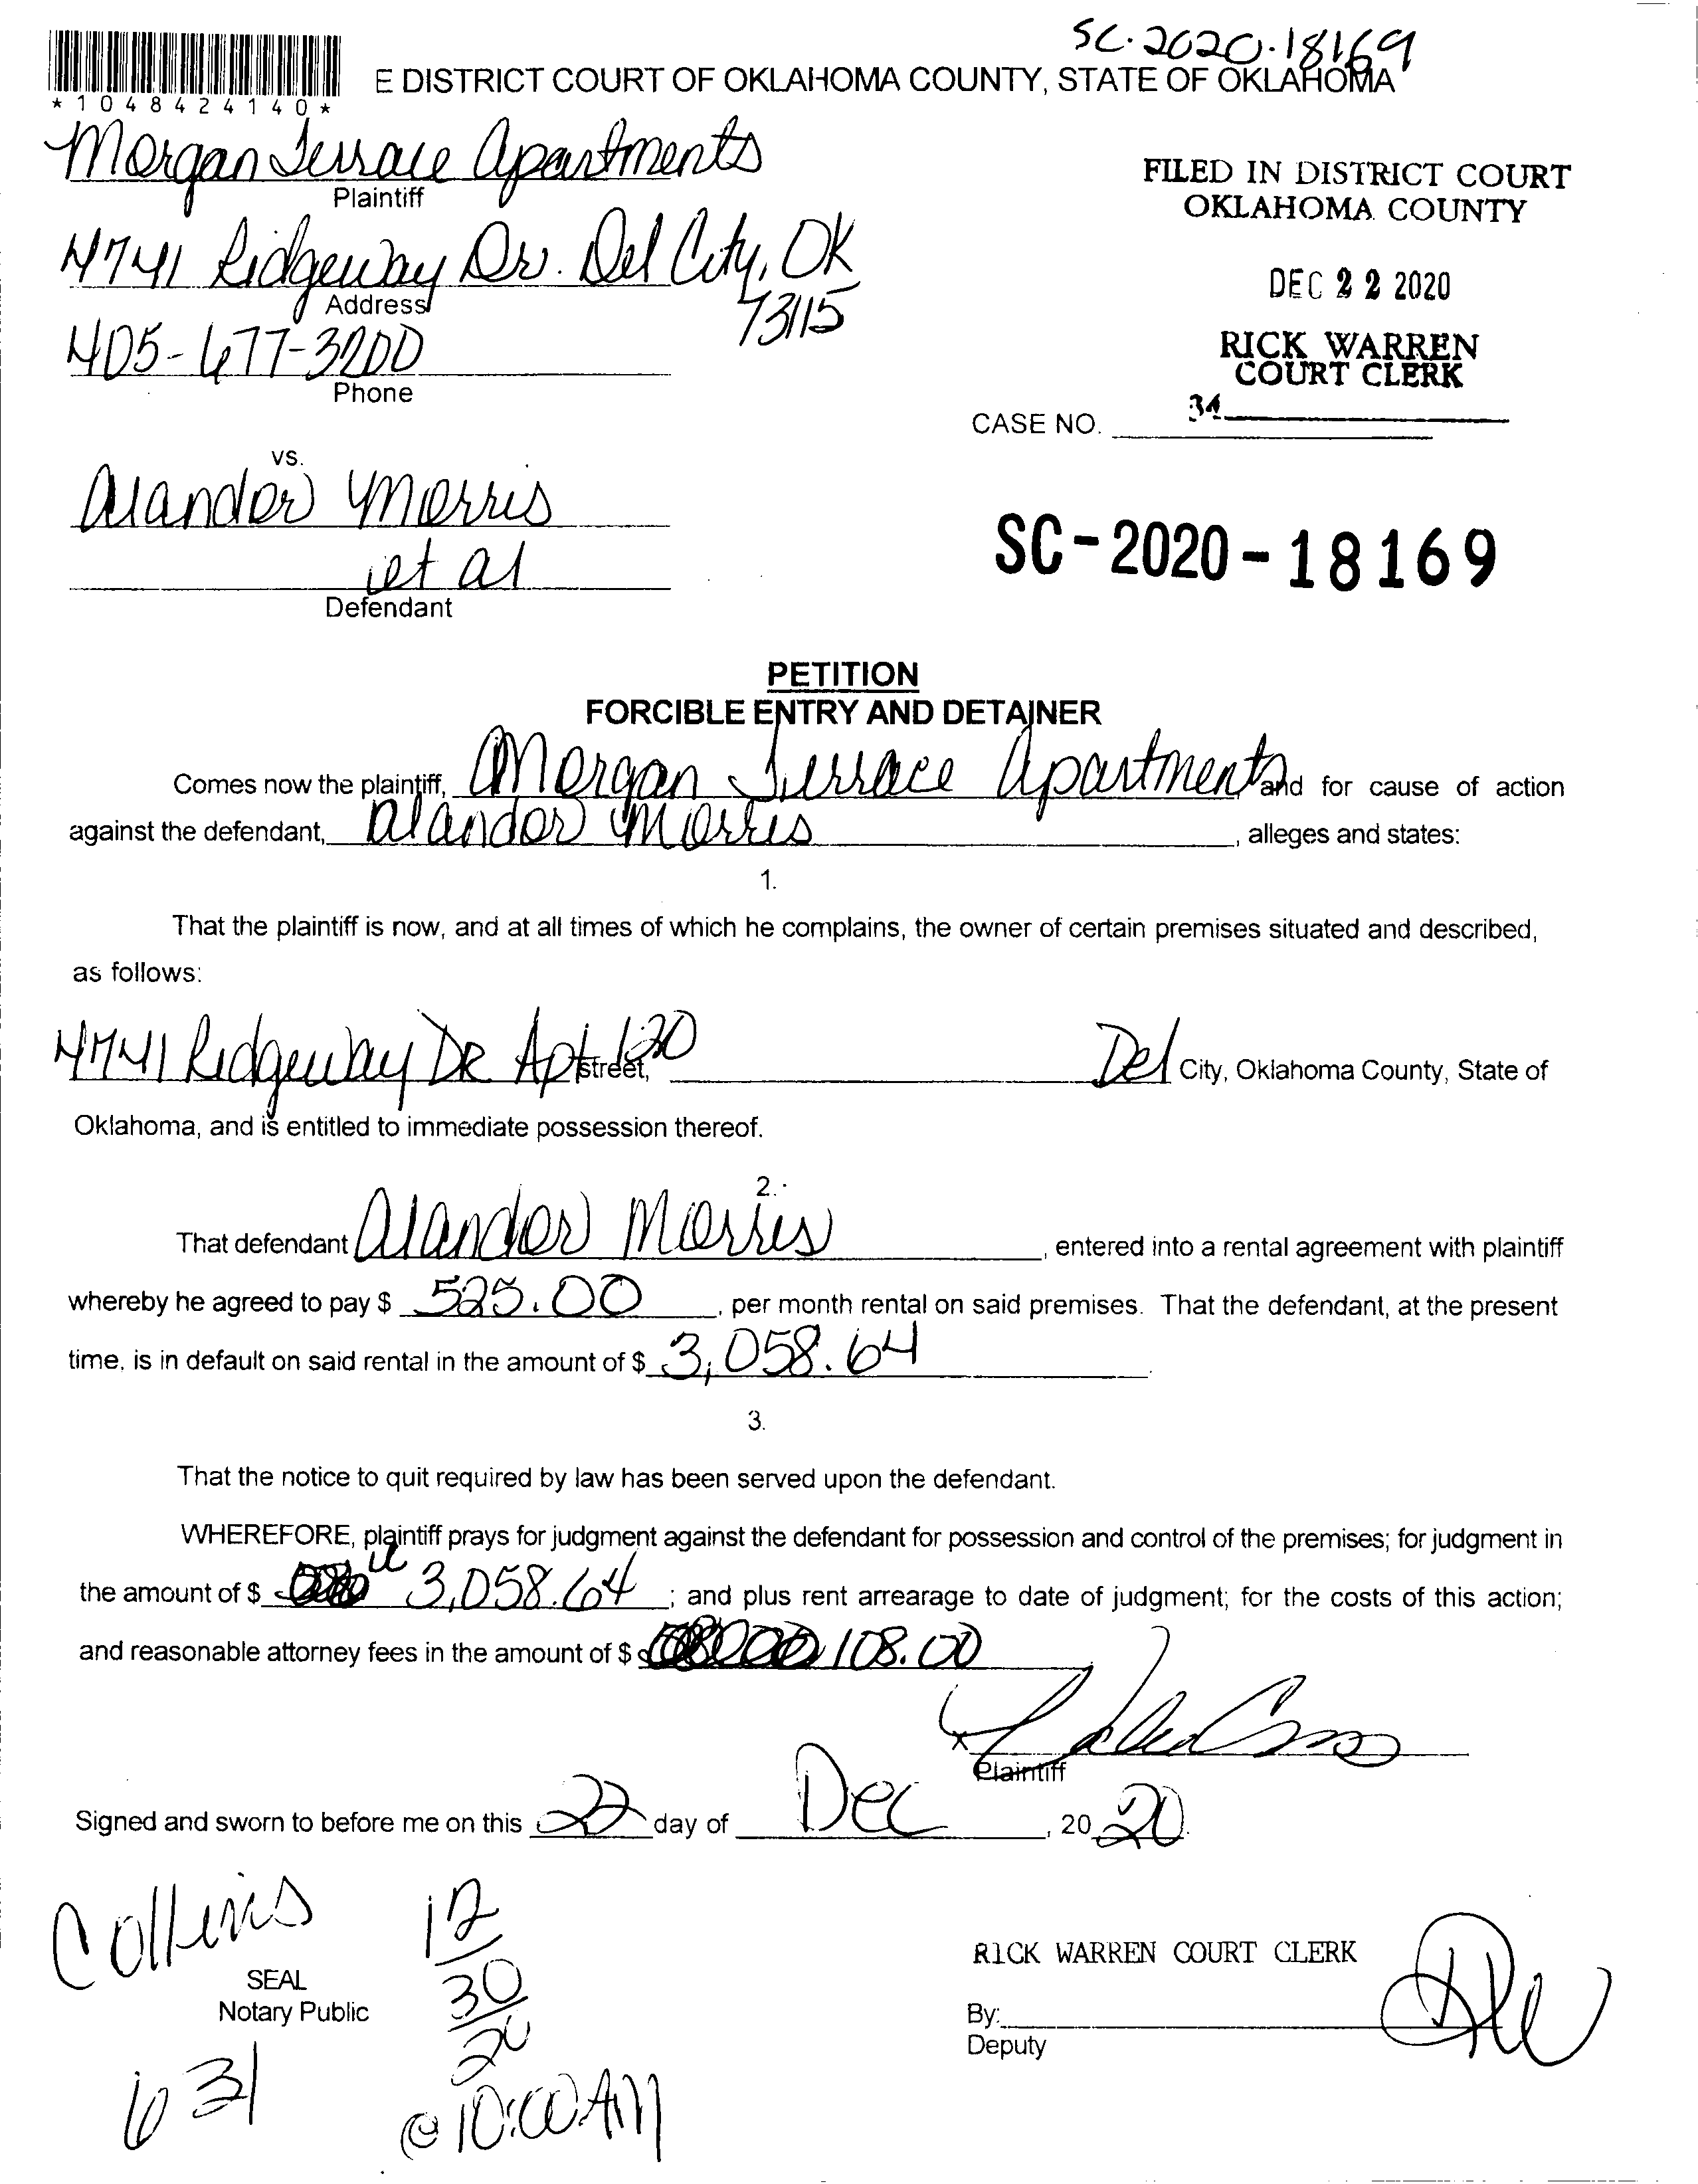 SC-2020-18169
*1048424140*
E DISTRICT COURT OF OKLAHOMA COUNTY, STATE OF OKLAHOMA
Morgan Terrace Apartments
Plaintiff
4741 Ridgeway Dr. Del City, OK
73115
Address
405-677-3200
Phone
FILED IN DISTRICT COURT
OKLAHOMA COUNTY
DEC 22 2020
RICK WARREN
COURT CLERK
34
CASE NO.
vs.
Alandor Morris
et al
Defendant
SC-2020-18169
PETITION
FORCIBLE ENTRY AND DETAINER
Comes now the plaintiff, Morgan Terrace Apartments and for cause of action
against the defendant, Alandor Morris, alleges and states:
1.
That the plaintiff is now, and at all times of which he complains, the owner of certain premises situated and described,
as follows:
4741 Ridgeway DR Apt 120 street, Del City, Oklahoma County, State of
Oklahoma, and is entitled to immediate possession thereof.
2.
That defendant Alandor Morris, entered into a rental agreement with plaintiff
whereby he agreed to pay $ 525.00, per month rental on said premises. That the defendant, at the present
time, is in default on said rental in the amount of $ 3,058.64
3.
That the notice to quit required by law has been served upon the defendant.
WHEREFORE, plaintiff prays for judgment against the defendant for possession and control of the premises; for judgment in
the amount of $ 3,058.64; and plus rent arrearage to date of judgment; for the costs of this action;
and reasonable attorney fees in the amount of $ 108.00
x
Plaintiff
Signed and sworn to before me on this 22 day of Dec, 20 20.
Collins
SEAL
Notary Public
631
12
30
20
@ 10:00 AM
RICK WARREN COURT CLERK
By:
Deputy